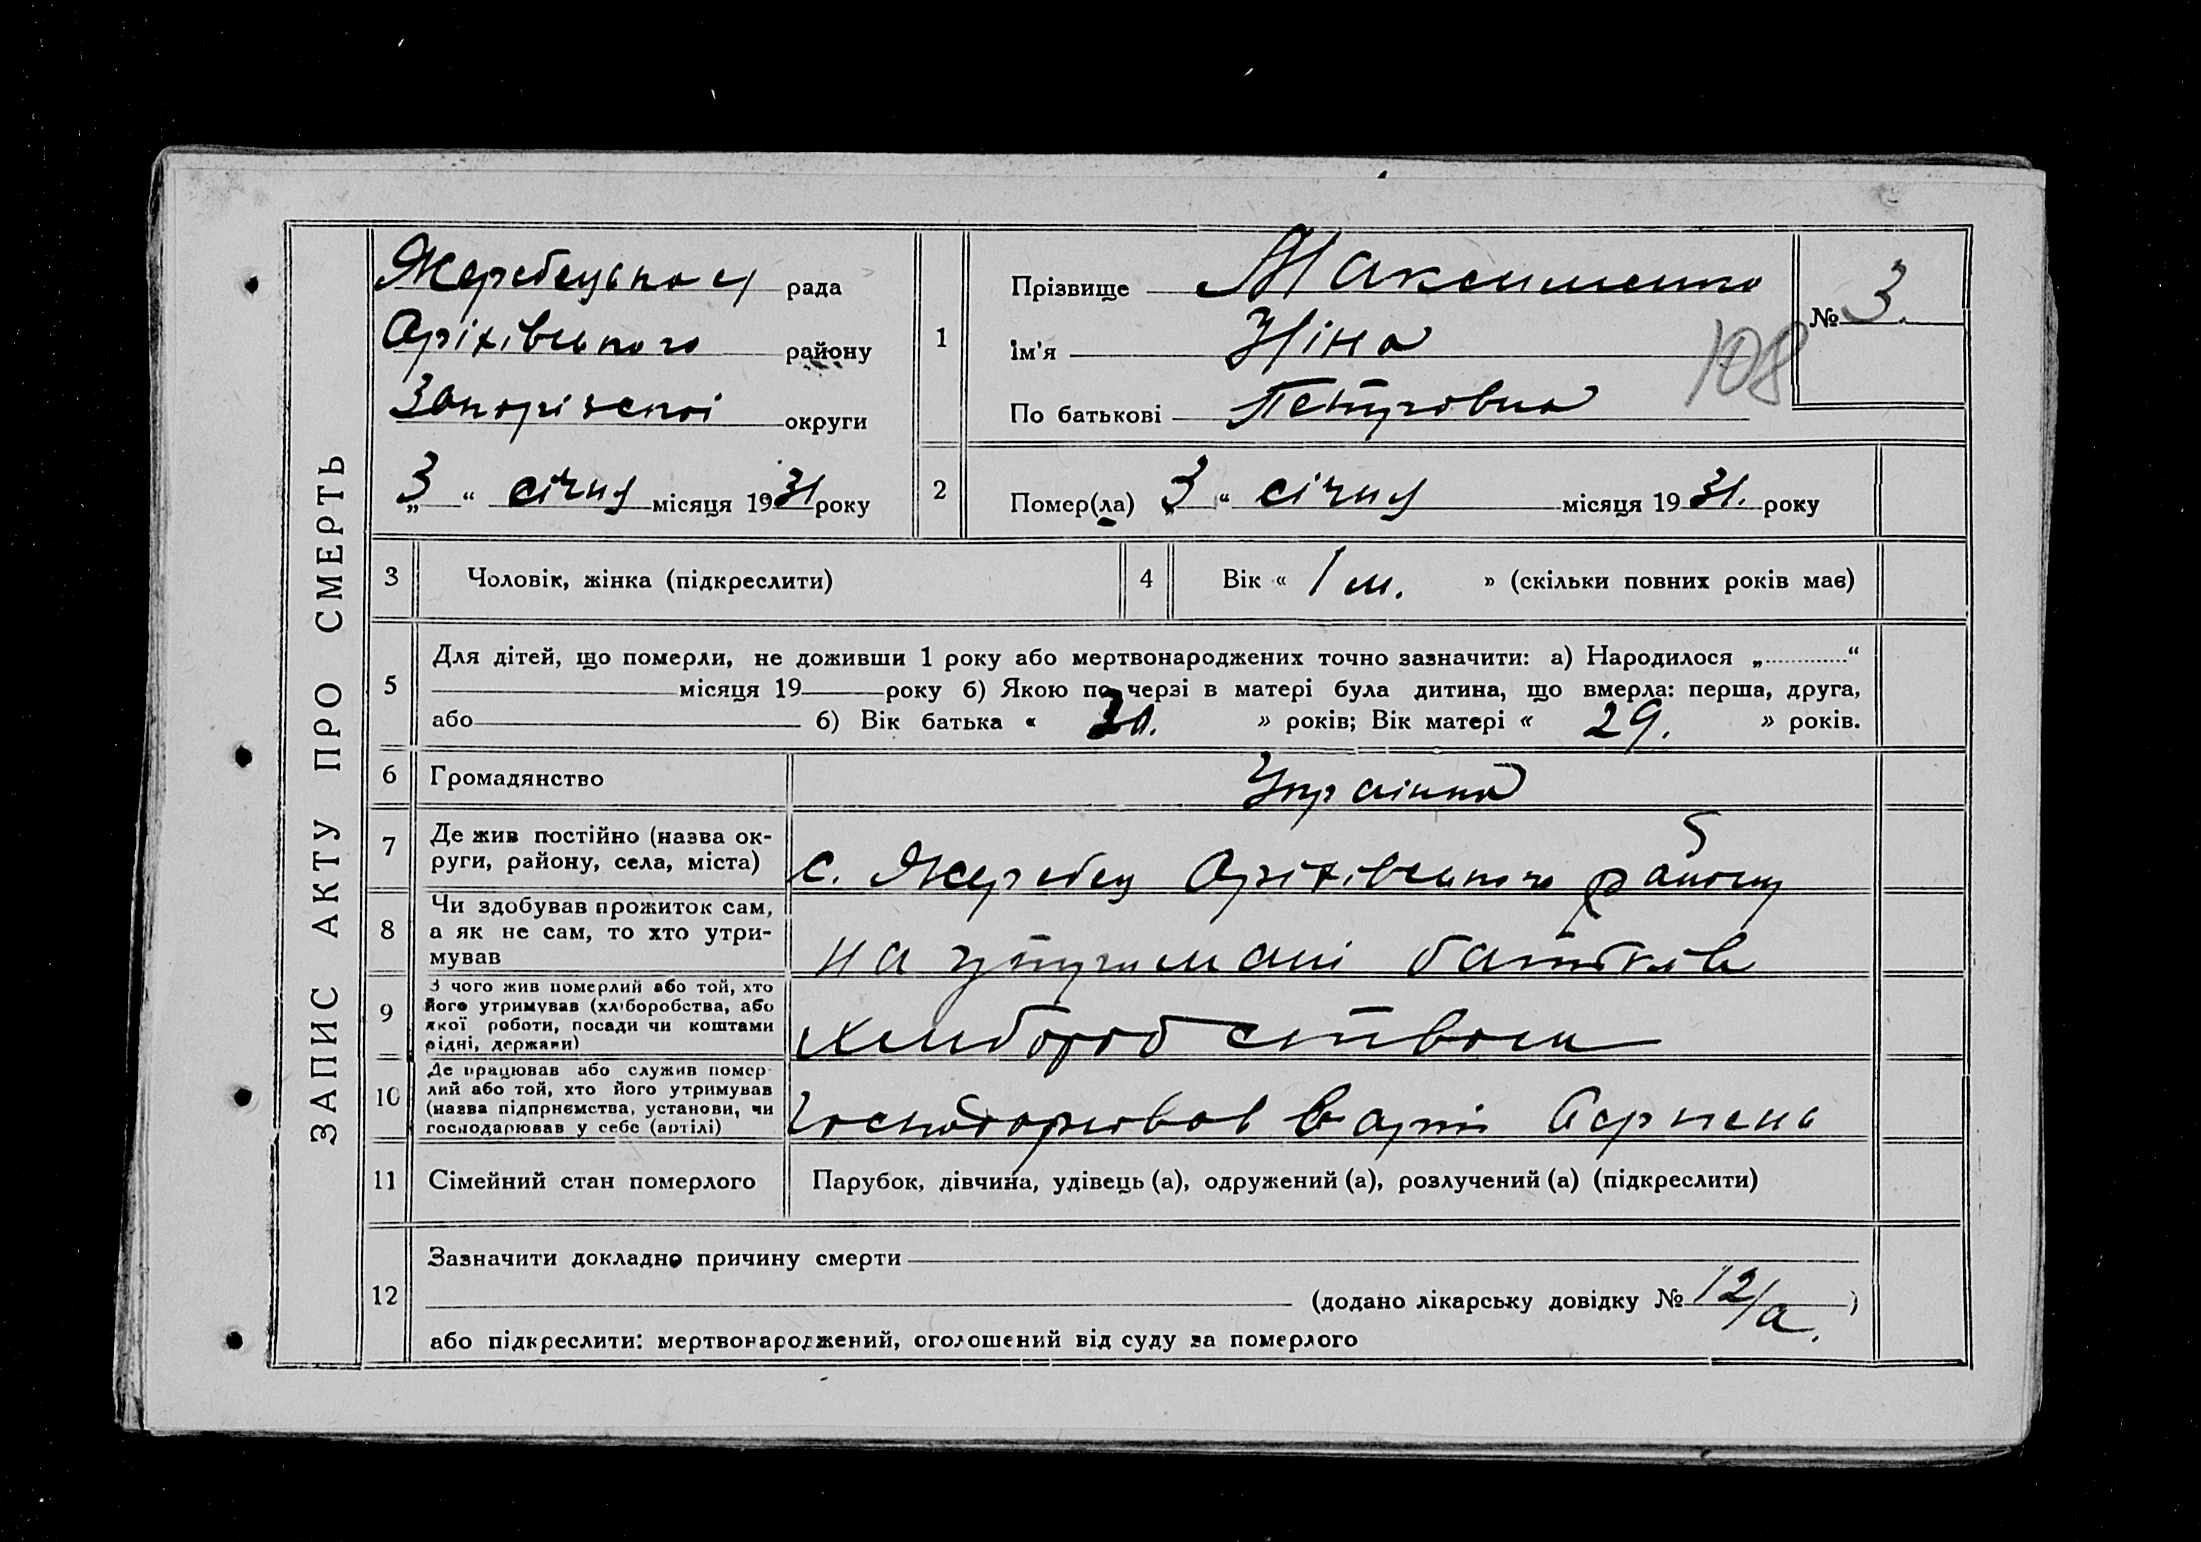 ЗАПИС АКТУ ПРО СМЕРТЬ
Жеребецької рада
Оріхівського району
Запоріжської округи
„ 3 “ січня місяця 1931 року
1
Прізвище Максименко
Ім'я Ніна
По батькові Петровна
№ 3.
108
2
Помер(ла) „ 3 “ січня місяця 1931. року
3 Чоловік, жінка (підкреслити)
4 Вік « 1 м. » (скільки повних років має)
5
Для дітей, що померли, не доживши 1 року або мертвонароджених точно зазначити: а) Народилося „ “
місяця 19 року б) Якою по черзі в матері була дитина, що вмерла: перша, друга,
або б) Вік батька « 30. » років; Вік матері « 29. » років.
6 Громадянство Українка
7 Де жив постійно (назва ок-
руги, району, села, міста)
с. Жеребец Оріхівського району
8 Чи здобував прожиток сам,
а як не сам, то хто утри-
мував
на утримані батьків
9 З чого жив померлий або той, хто
його утримував (хліборобства, або
якої роботи, посади чи коштами
рідні, держави)
хлиборобством
10 Де працював або служив помер-
лий або той, хто його утримував
(назва підприємства, установи, чи
господарював у себе (артілі)
Господорював в арті Серпень
11 Сімейний стан померлого
Парубок, дівчина, удівець (а), одружений (а), розлучений (а) (підкреслити)
12
Зазначити докладно причину смерти
(додано лікарську довідку № 12/а. )
або підкреслити: мертвонароджений, оголошений від суду за померлого